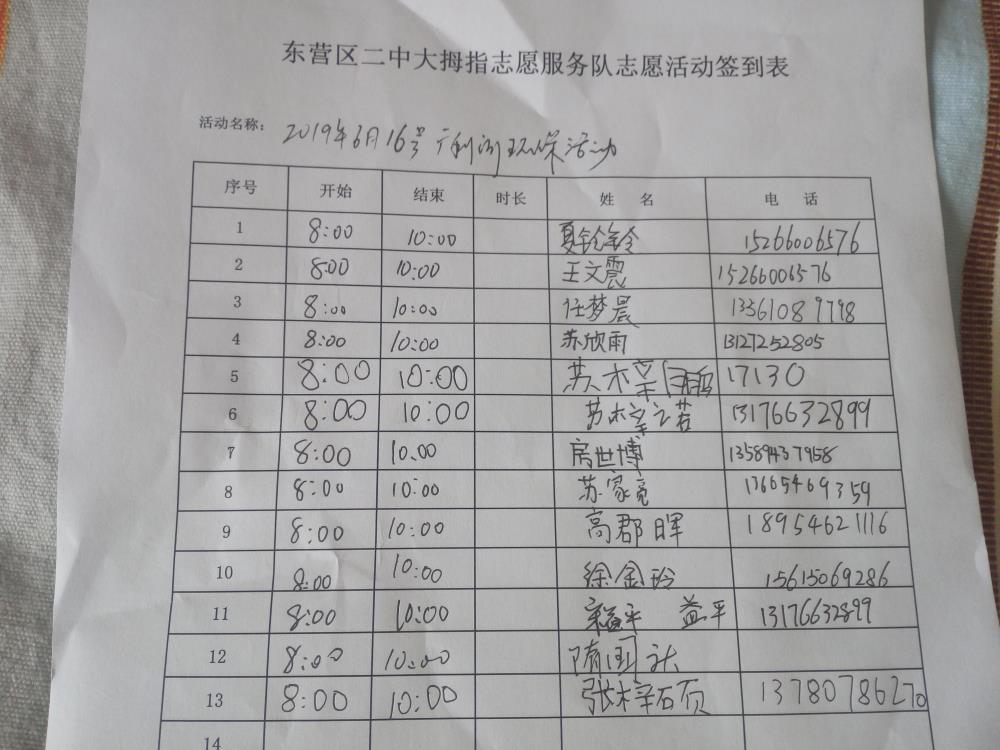 东营区二中大拇指志愿服务队志愿活动签到表
活动名称: 2019年6月16号广利河环保活动
序号 开始 结束 时长 姓名 电话
1 8:00 10:00 夏铃铃 15266006576
2 8:00 10:00 王文震 15266006576
3 8:00 10:00 任梦晨 13361089798
4 8:00 10:00 苏欣雨 13127252805
5 8:00 10:00 苏 17130
6 8:00 10:00 苏 若 13176632899
7 8:00 10:00 房世博 13589437958
8 8:00 10:00 苏家亮 13665469359
9 8:00 10:00 高郡晖 18954621116
10 8:00 10:00 徐金玲 15615069286
11 8:00 10:00 益平 13176632899
12 8:00 10:00 隋国
13 8:00 10:00 张梓 13780786270
14